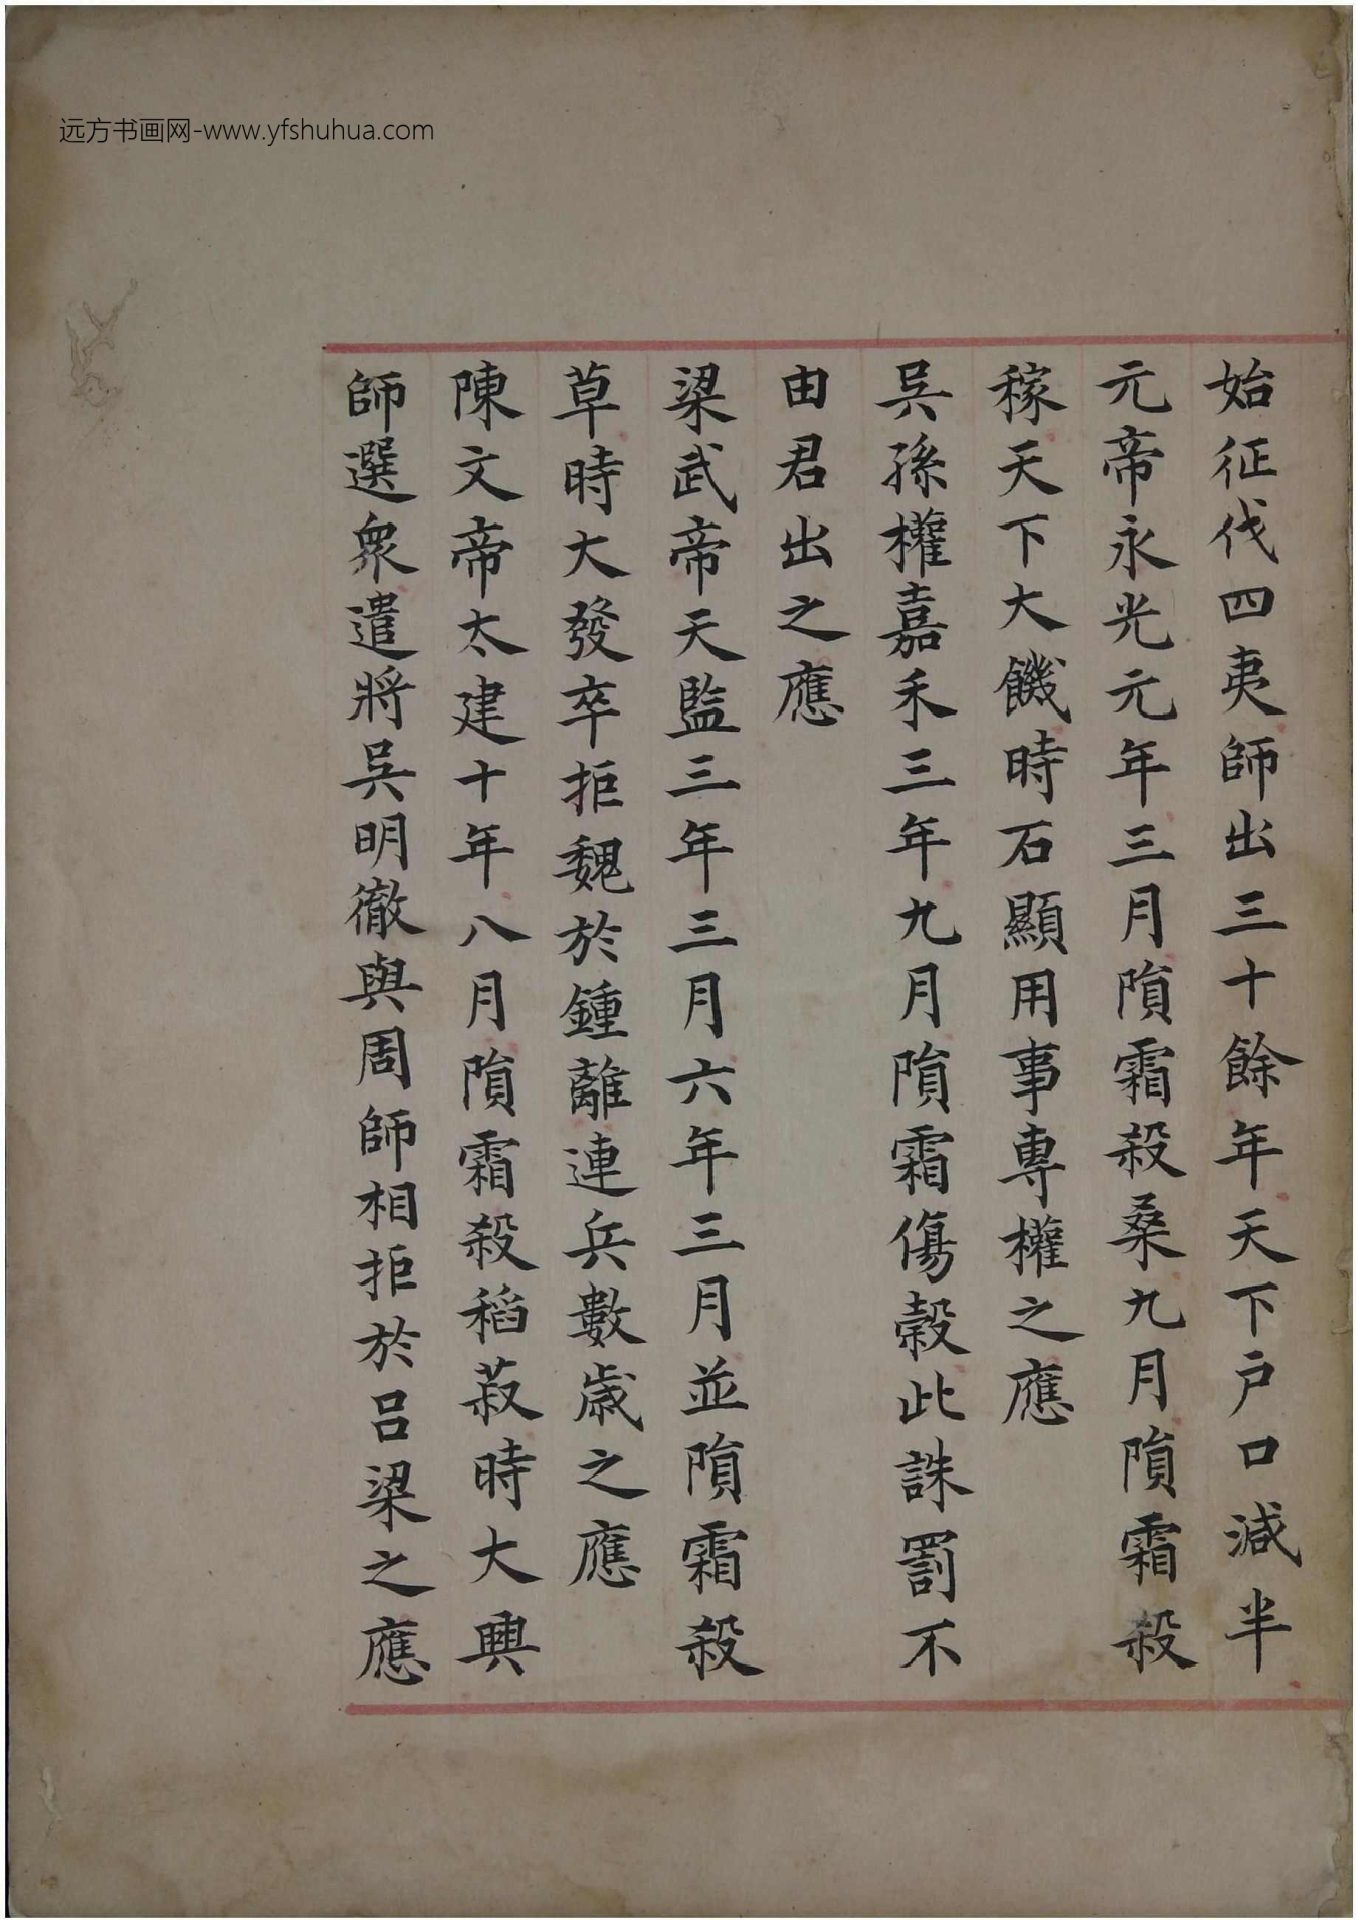 远方书画网-www.yfshuhua.com
始征伐四夷師出三十餘年天下户口減半
元帝永光元年三月隕霜殺桑九月隕霜殺
稼天下大饑時石顯用事專權之應
吳孫權嘉禾三年九月隕霜傷榖此誅罰不
由君出之應
梁武帝天監三年三月六年三月並隕霜殺
草時大發卒拒魏於鍾離連兵數歲之應
陳文帝太建十年八月隕霜殺稻菽時大興
師選衆遣將吳明徹與周師相拒於吕梁之應